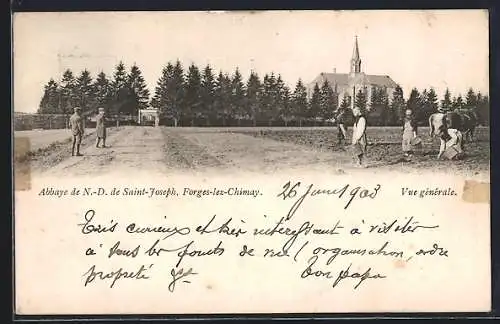 Abbaye de N.-D. de Saint-Joseph, Forges-lez-Chimay.
26 1903
Vue générale.
Très curieux et bien intéressant à visiter
à tous les points de vue / organisation, ordre
propreté etc. Ton papa